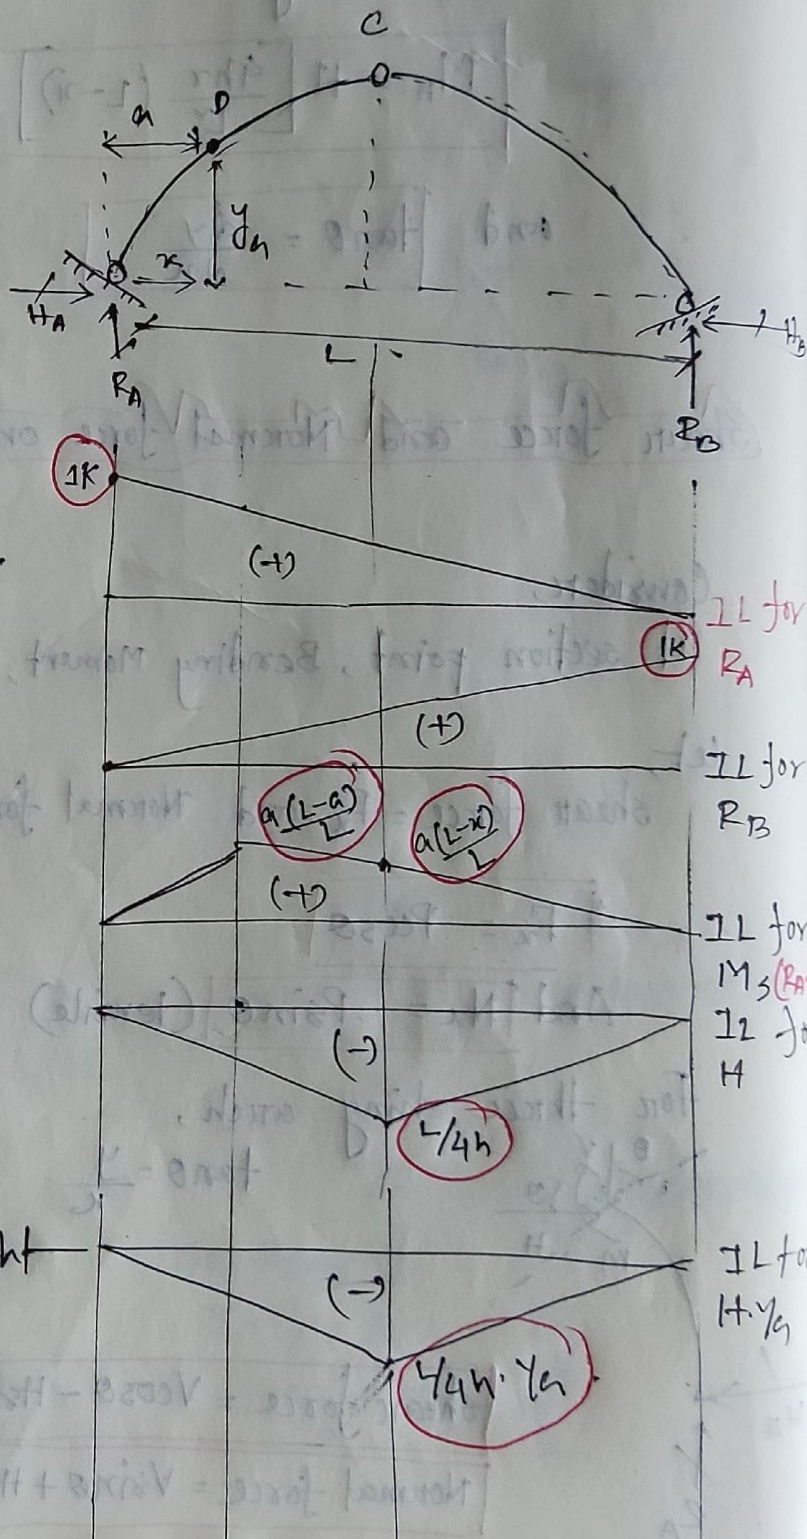 C
D
a
yₐ
x
H_A
R_A
L
H_B
R_B
1K
(+)
IL for
R_A
1K
(+)
IL for
R_B
a(L-a)/L
a(L-x)/L
(+)
IL for
M_s(R_A
(-)
IL fo
H
L/4h
ht
(-)
IL fo
H.yₐ
L/4h.yₐ